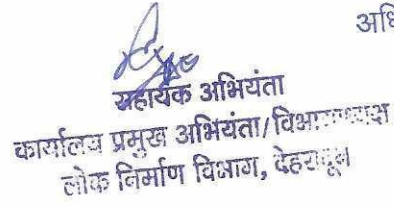 अधि
सहायक अभियंता
कार्यालय प्रमुख अभियंता/विभागाध्यक्ष
लोक निर्माण विभाग, देहरादून